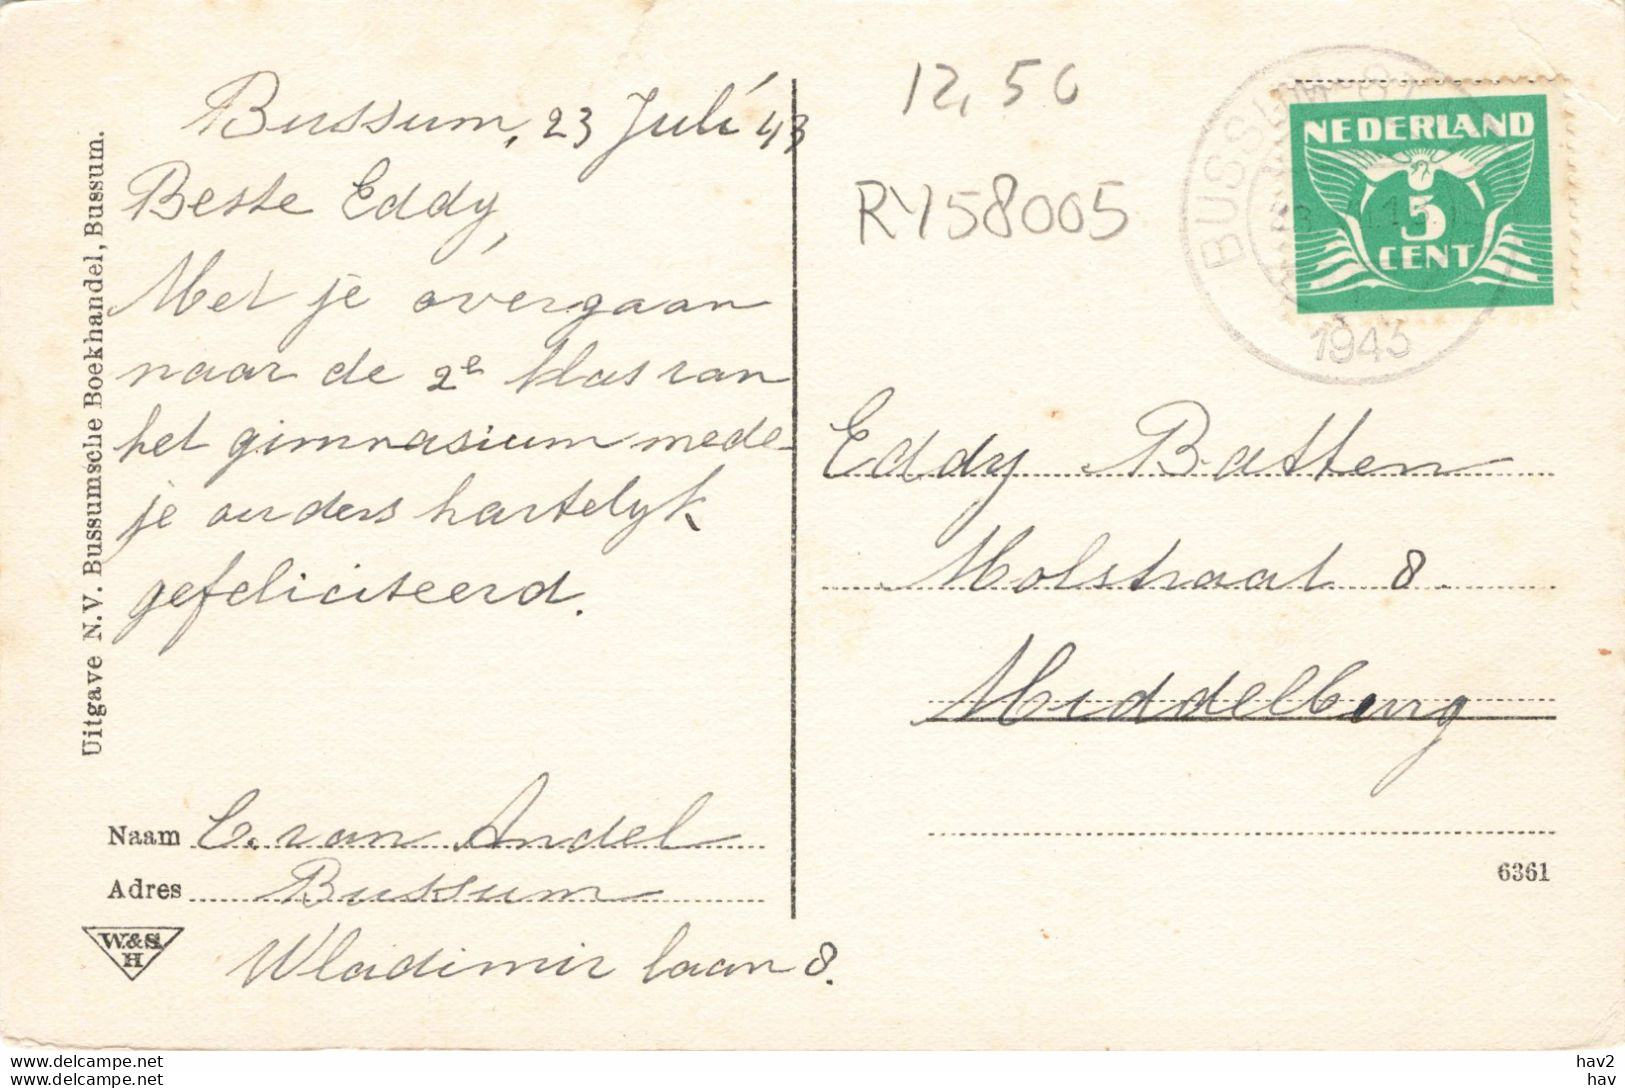 Bussum, 23 Juli 43
Beste Eddy,
Met je overgaan
naar de 2e klas van
het gimnasium mede
je ouders hartelyk
gefeliciteerd.
Naam C. van Andel
Adres Bussum
Wladimir laan 8.
W.&S.
H
Uitgave N.V. Bussumsche Boekhandel, Bussum.
12,50
RY58005
BUSSUM
1943
NEDERLAND
5
CENT
Eddy Batten
Molstraat 8.
Middelburg
6361
www.delcampe.net
www.delcampe.net
hav2
hav